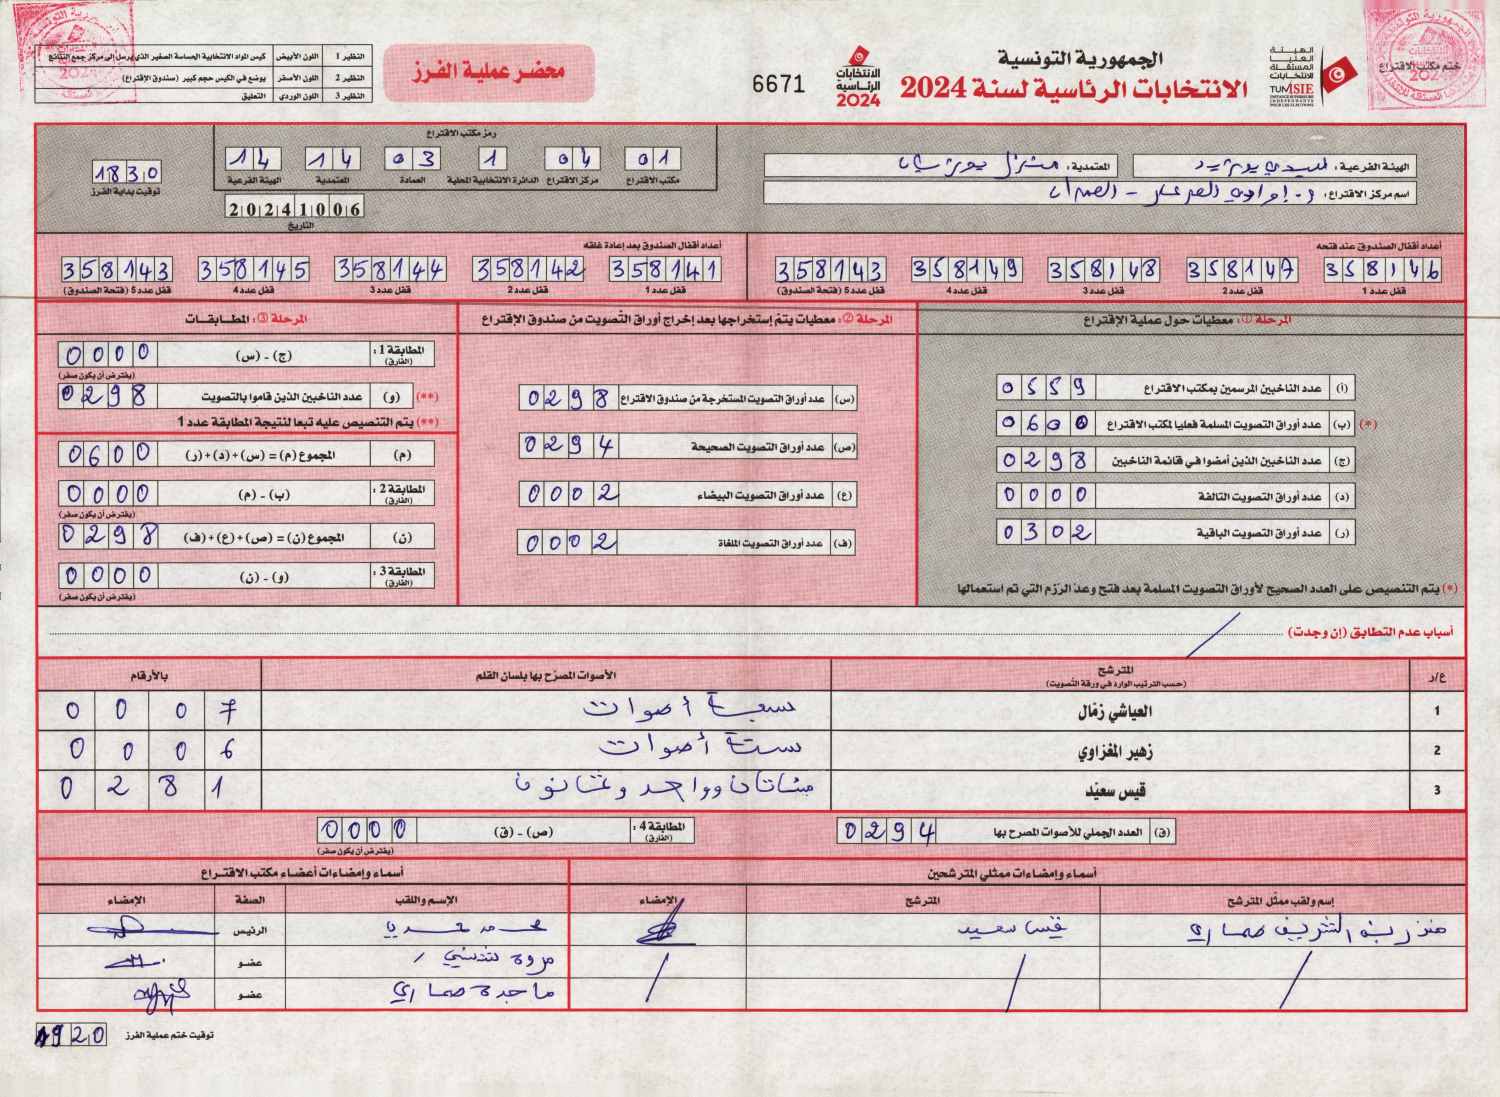 ختم مكتب الاقتراع
الهيئة العليا المستقلة للانتخابات
TUNISIE
الجمهورية التونسية
الانتخابات الرئاسية لسنة 2024
الانتخابات الرئاسية 2024
6671
محضر عملية الفرز
النظير 1 اللون الأبيض كيس المواد الانتخابية الحساسة الصغير الذي يرسل إلى مركز جمع النتائج
النظير 2 اللون الأصفر يوضع في الكيس حجم كبير (صندوق الإقتراع)
النظير 3 اللون الوردي التعليق
الهيئة الفرعية : سيدي بوزيد المعتمدية : منزل بوزيان
اسم مركز الاقتراع :
رمز مكتب الاقتراع
01 04 1 03 14 14
مكتب الاقتراع مركز الاقتراع الدائرة الانتخابية المحلية العمادة المعتمدية الهيئة الفرعية
1830
توقيت بداية الفرز
20241006
التاريخ
أعداد أقفال الصندوق عند فتحه
358146 358148 358149 358143
قفل عدد 1 قفل عدد 2 قفل عدد 3 قفل عدد 4 قفل عدد 5 (فتحة الصندوق)
أعداد أقفال الصندوق بعد إعادة غلقه
358141 358142 358144 358145 358143
قفل عدد 1 قفل عدد 2 قفل عدد 3 قفل عدد 4 قفل عدد 5 (فتحة الصندوق)
المرحلة ①: معطيات حول عملية الإقتراع
(أ) عدد الناخبين المرسمين بمكتب الاقتراع 0559
(*) (ب) عدد أوراق التصويت المسلمة فعليا لمكتب الاقتراع 0600
(ج) عدد الناخبين الذين أمضوا في قائمة الناخبين 0298
(د) عدد أوراق التصويت التالفة 0000
(ر) عدد أوراق التصويت الباقية 0302
(*) يتم التنصيص على العدد الصحيح لأوراق التصويت المسلمة بعد فتح وعدّ الرّزم التي تم استعمالها
المرحلة ②: معطيات يتمّ إستخراجها بعد إخراج أوراق التّصويت من صندوق الإقتراع
(س) عدد أوراق التصويت المستخرجة من صندوق الاقتراع 0298
(ص) عدد أوراق التصويت الصحيحة 0294
(ع) عدد أوراق التصويت البيضاء 0002
(ف) عدد أوراق التصويت الملغاة 0002
المرحلة ③: المطابقات
المطابقة 1 : (الفارق) (ج) - (س) 0000
(يفترض أن يكون صفر)
(**) (و) عدد الناخبين الذين قاموا بالتصويت 0298
(**) يتم التنصيص عليه تبعا لنتيجة المطابقة عدد 1
(م) المجموع (م) = (س)+(د)+(ر) 0600
المطابقة 2 : (الفارق) (ب) - (م) 0000
(يفترض أن يكون صفر)
(ن) المجموع (ن) = (ص)+(ع)+(ف) 0298
المطابقة 3 : (الفارق) (و) - (ن) 0000
(يفترض أن يكون صفر)
أسباب عدم التطابق (إن وجدت)
ع/ر المترشح الأصوات المصرّح بها بلسان القلم بالأرقام
(حسب الترتيب الوارد في ورقة التّصويت)
1 العياشي زمّال سبعة أصوات 0007
2 زهير المغزاوي ستة أصوات 0006
3 قيس سعيّد مئتان وواحد وثمانون 0281
(ق) العدد الجملي للأصوات المصرح بها 0294
المطابقة 4 : (الفارق) (ص) - (ق) 0000
(يفترض أن يكون صفر)
أسماء وإمضاءات ممثلي المترشحين
إسم ولقب ممثّل المترشح المترشح الإمضاء
قيس سعيد
أسماء وإمضاءات أعضاء مكتب الاقتراع
الإسم واللقب الصفة الإمضاء
الرئيس
عضو
ماجدة عماري عضو
توقيت ختم عملية الفرز 1920